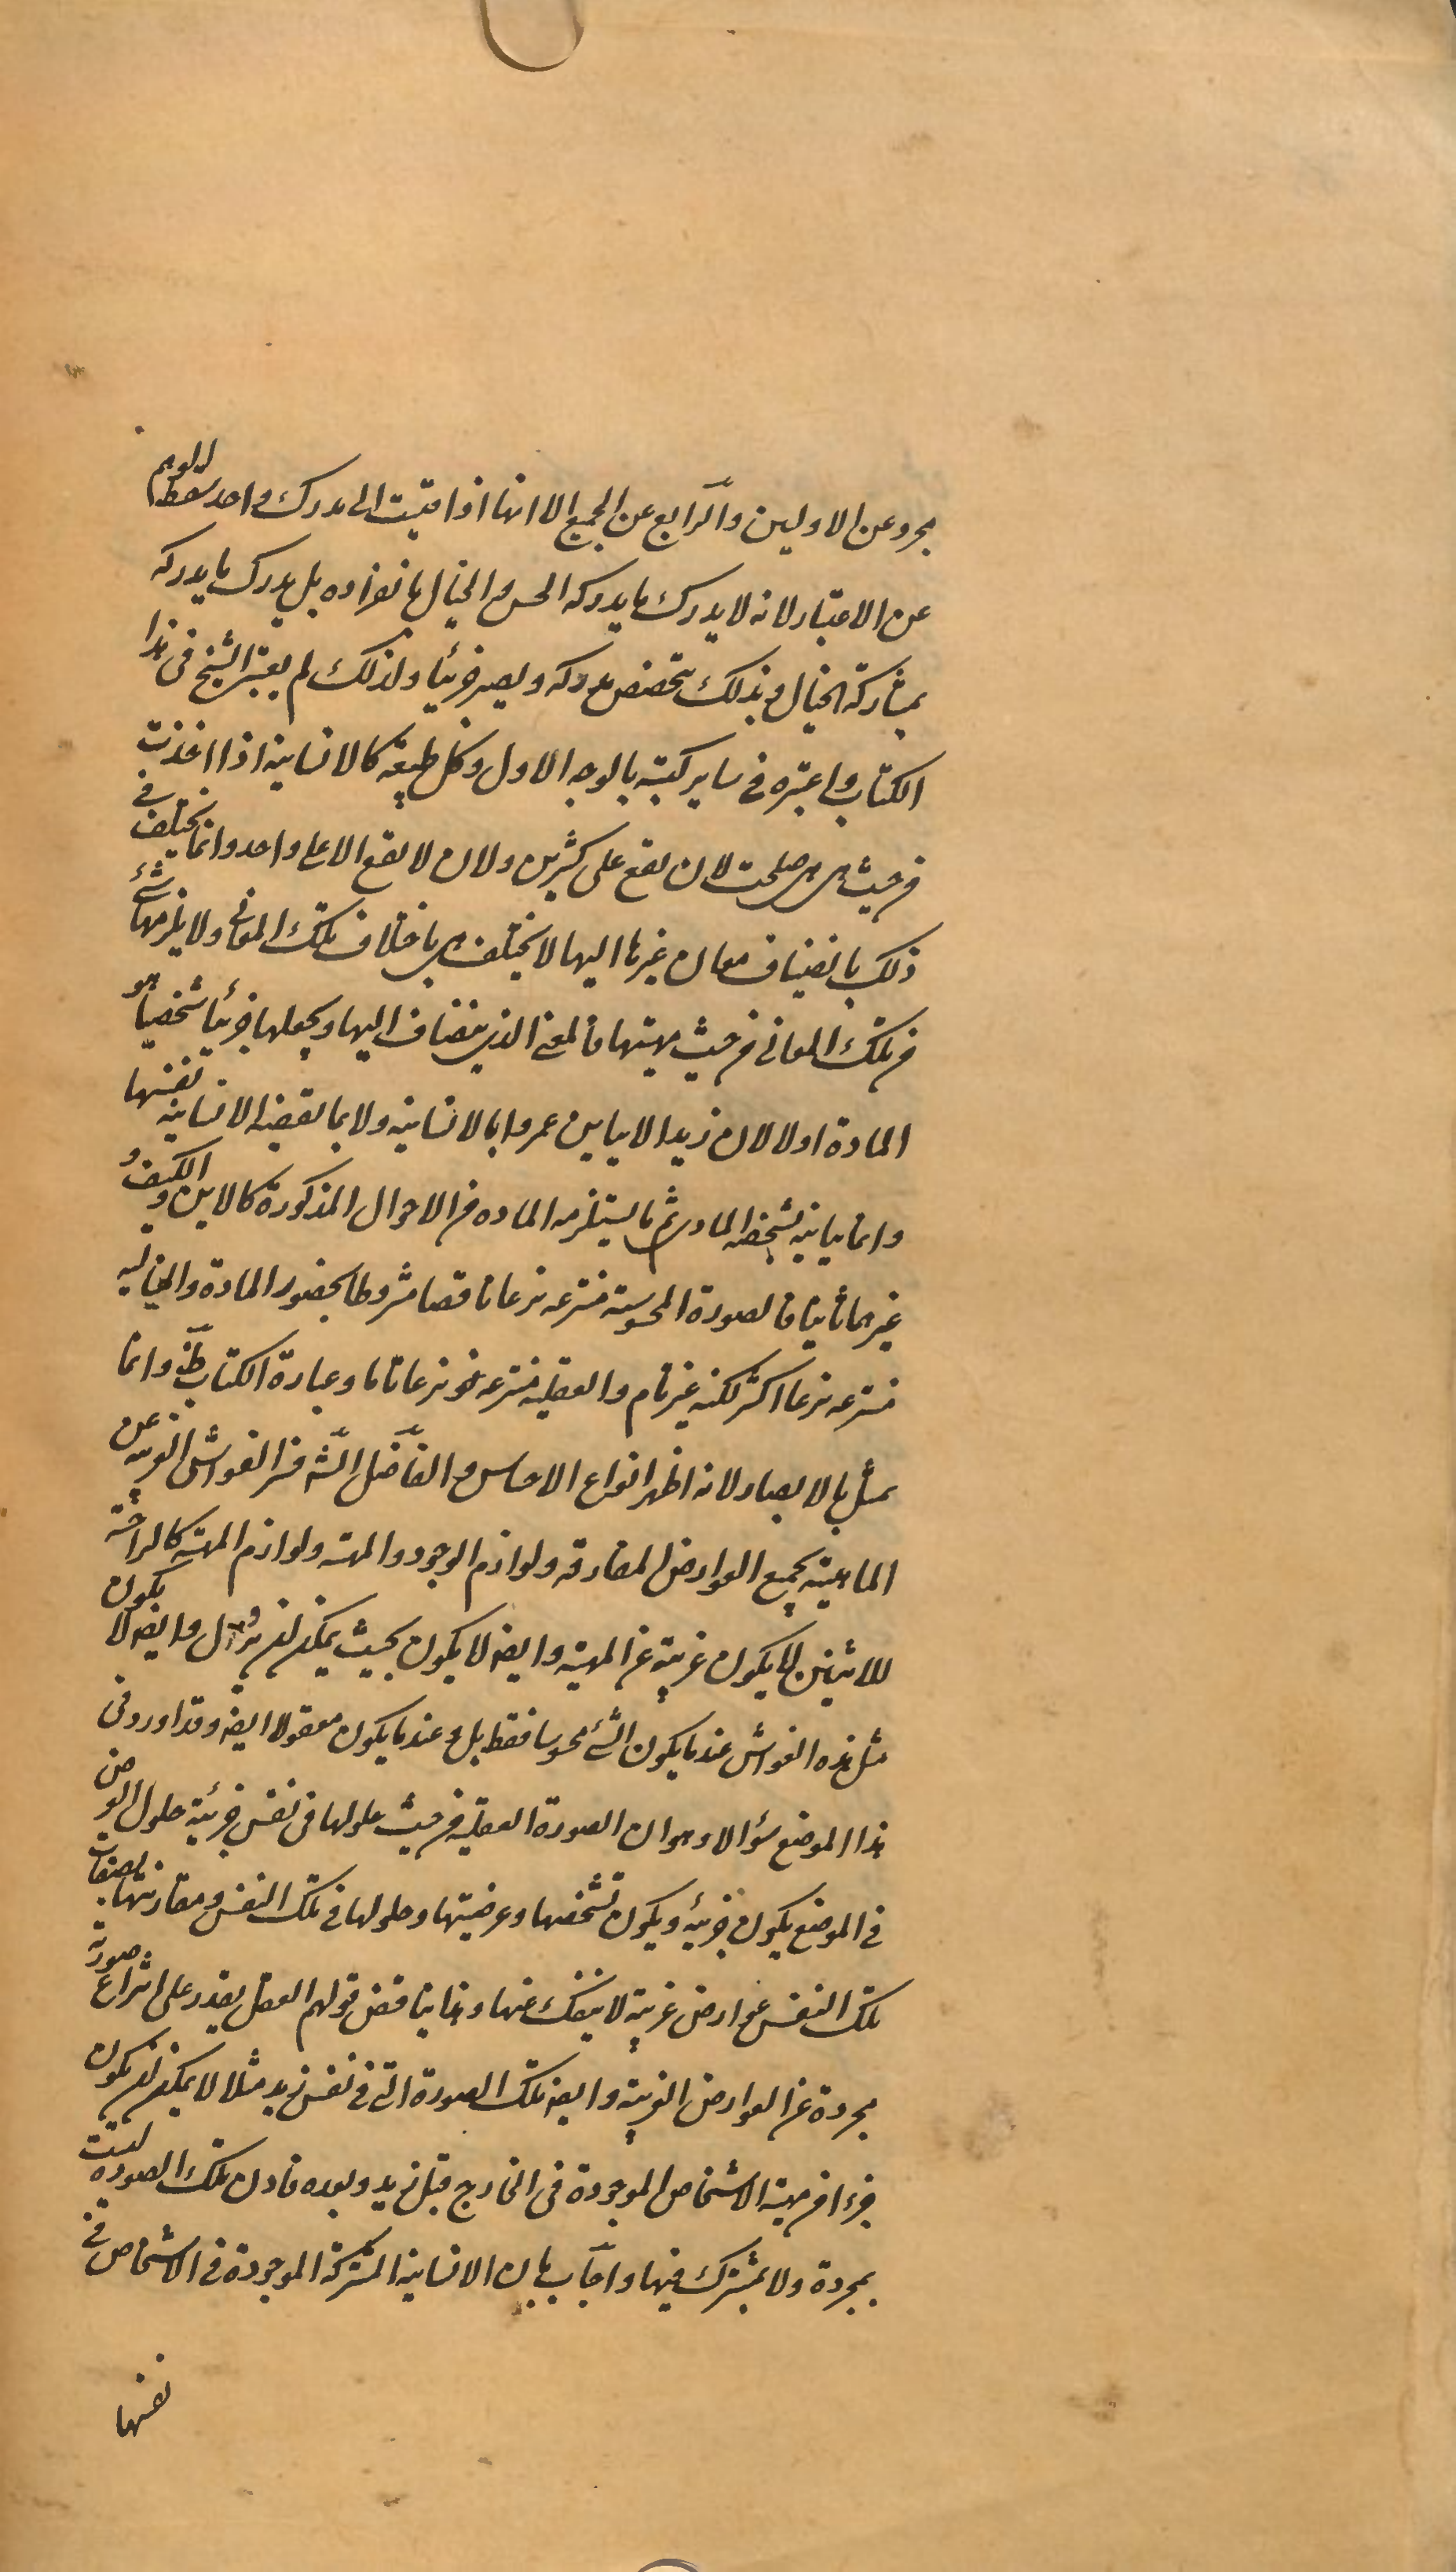 مجرد عن الاولين والرابع عن الجميع الا انها اذا قيست الى مدرك واحد سقط الوهم
عن الاعتبار لانه لا يدرك ما يدركه الحس و الخيال بانفراده بل يدرك ما يدركه
بمشاركة الخيال و بذلك يتخصص مدركه ويصير جزئيا ولذلك لم يعتبر الشيخ فى هذا
الكتاب و اعتبره فى ساير كتبه بالوجه الاول وكل طبيعة كالانسانية اذا اخذت
من حيث هى هى صلحت لان تقع على كثيرين ولان لا تقع الا على واحد وانما يختلف فى
ذلك بانضياف معان غيرها اليها لا يختلف هى باختلاف تلك المعانى ولا يلزمها شئ
من تلك المعانى من حيث مهيتها فالمعنى الذى ينضاف اليها ويجعلها جزئيا شخصيا هو
المادة اولا لان زيدا لا يباين عمروا بالانسانية ولا بما تقتضيه الانسانية نفسها
وانما يباينه بشخصه المادى ثم ما يستلزمه المادة من الاحوال المذكورة كالاين والكيف و
غيرهما ثانيا فالصورة المحسوسة منتزعه نزعا ناقصا مشروطا بحضور المادة والخياليه
منتزعه نزعا اكثر لكنه غير تام والعقليه منتزعه نزعا تاما وعبارة الكتاب ظ وانما
مثل بالابصار لانه اظهر انواع الاحساس و الفاضل الش فسر الغواشى الغريبه عن
الماهية بجميع العوارض المفارقه ولوازم الوجود والمهية ولوازم المهية كالزوجية
للاثنين لا يكون غريبة عن المهية وايضه لا يكون بحيث يمكن ان يزول وايضه لا يكون
مثل هذه الغواشى عند ما يكون الشئ محسوسا فقط بل وعند ما يكون معقولا ايضه وقد اورد فى
هذا الموضع سؤالا وهو ان الصورة العقلية من حيث حلولها فى نفس جزئية حلول العرض
فى الموضع يكون جزئية ويكون تشخصها وعرضيتها وحلولها فى تلك النفس و مقارنتها بصفات
تلك النفس عوارض غريبة لا ينفك عنها و هذا يناقض قولهم العقل يقدر على انتزاع صورة
مجردة عن العوارض الغريبة وايضه تلك الصورة التى فى نفس زيد مثلا لا يمكن ان يكون
جزءا من مهية الاشخاص الموجودة فى الخارج قبل زيد و بعده فاذن تلك الصورة ليست
بمجردة ولا بمشترك فيها واجاب بان الانسانية المشتركة الموجودة فى الاشخاص فى
نفسها